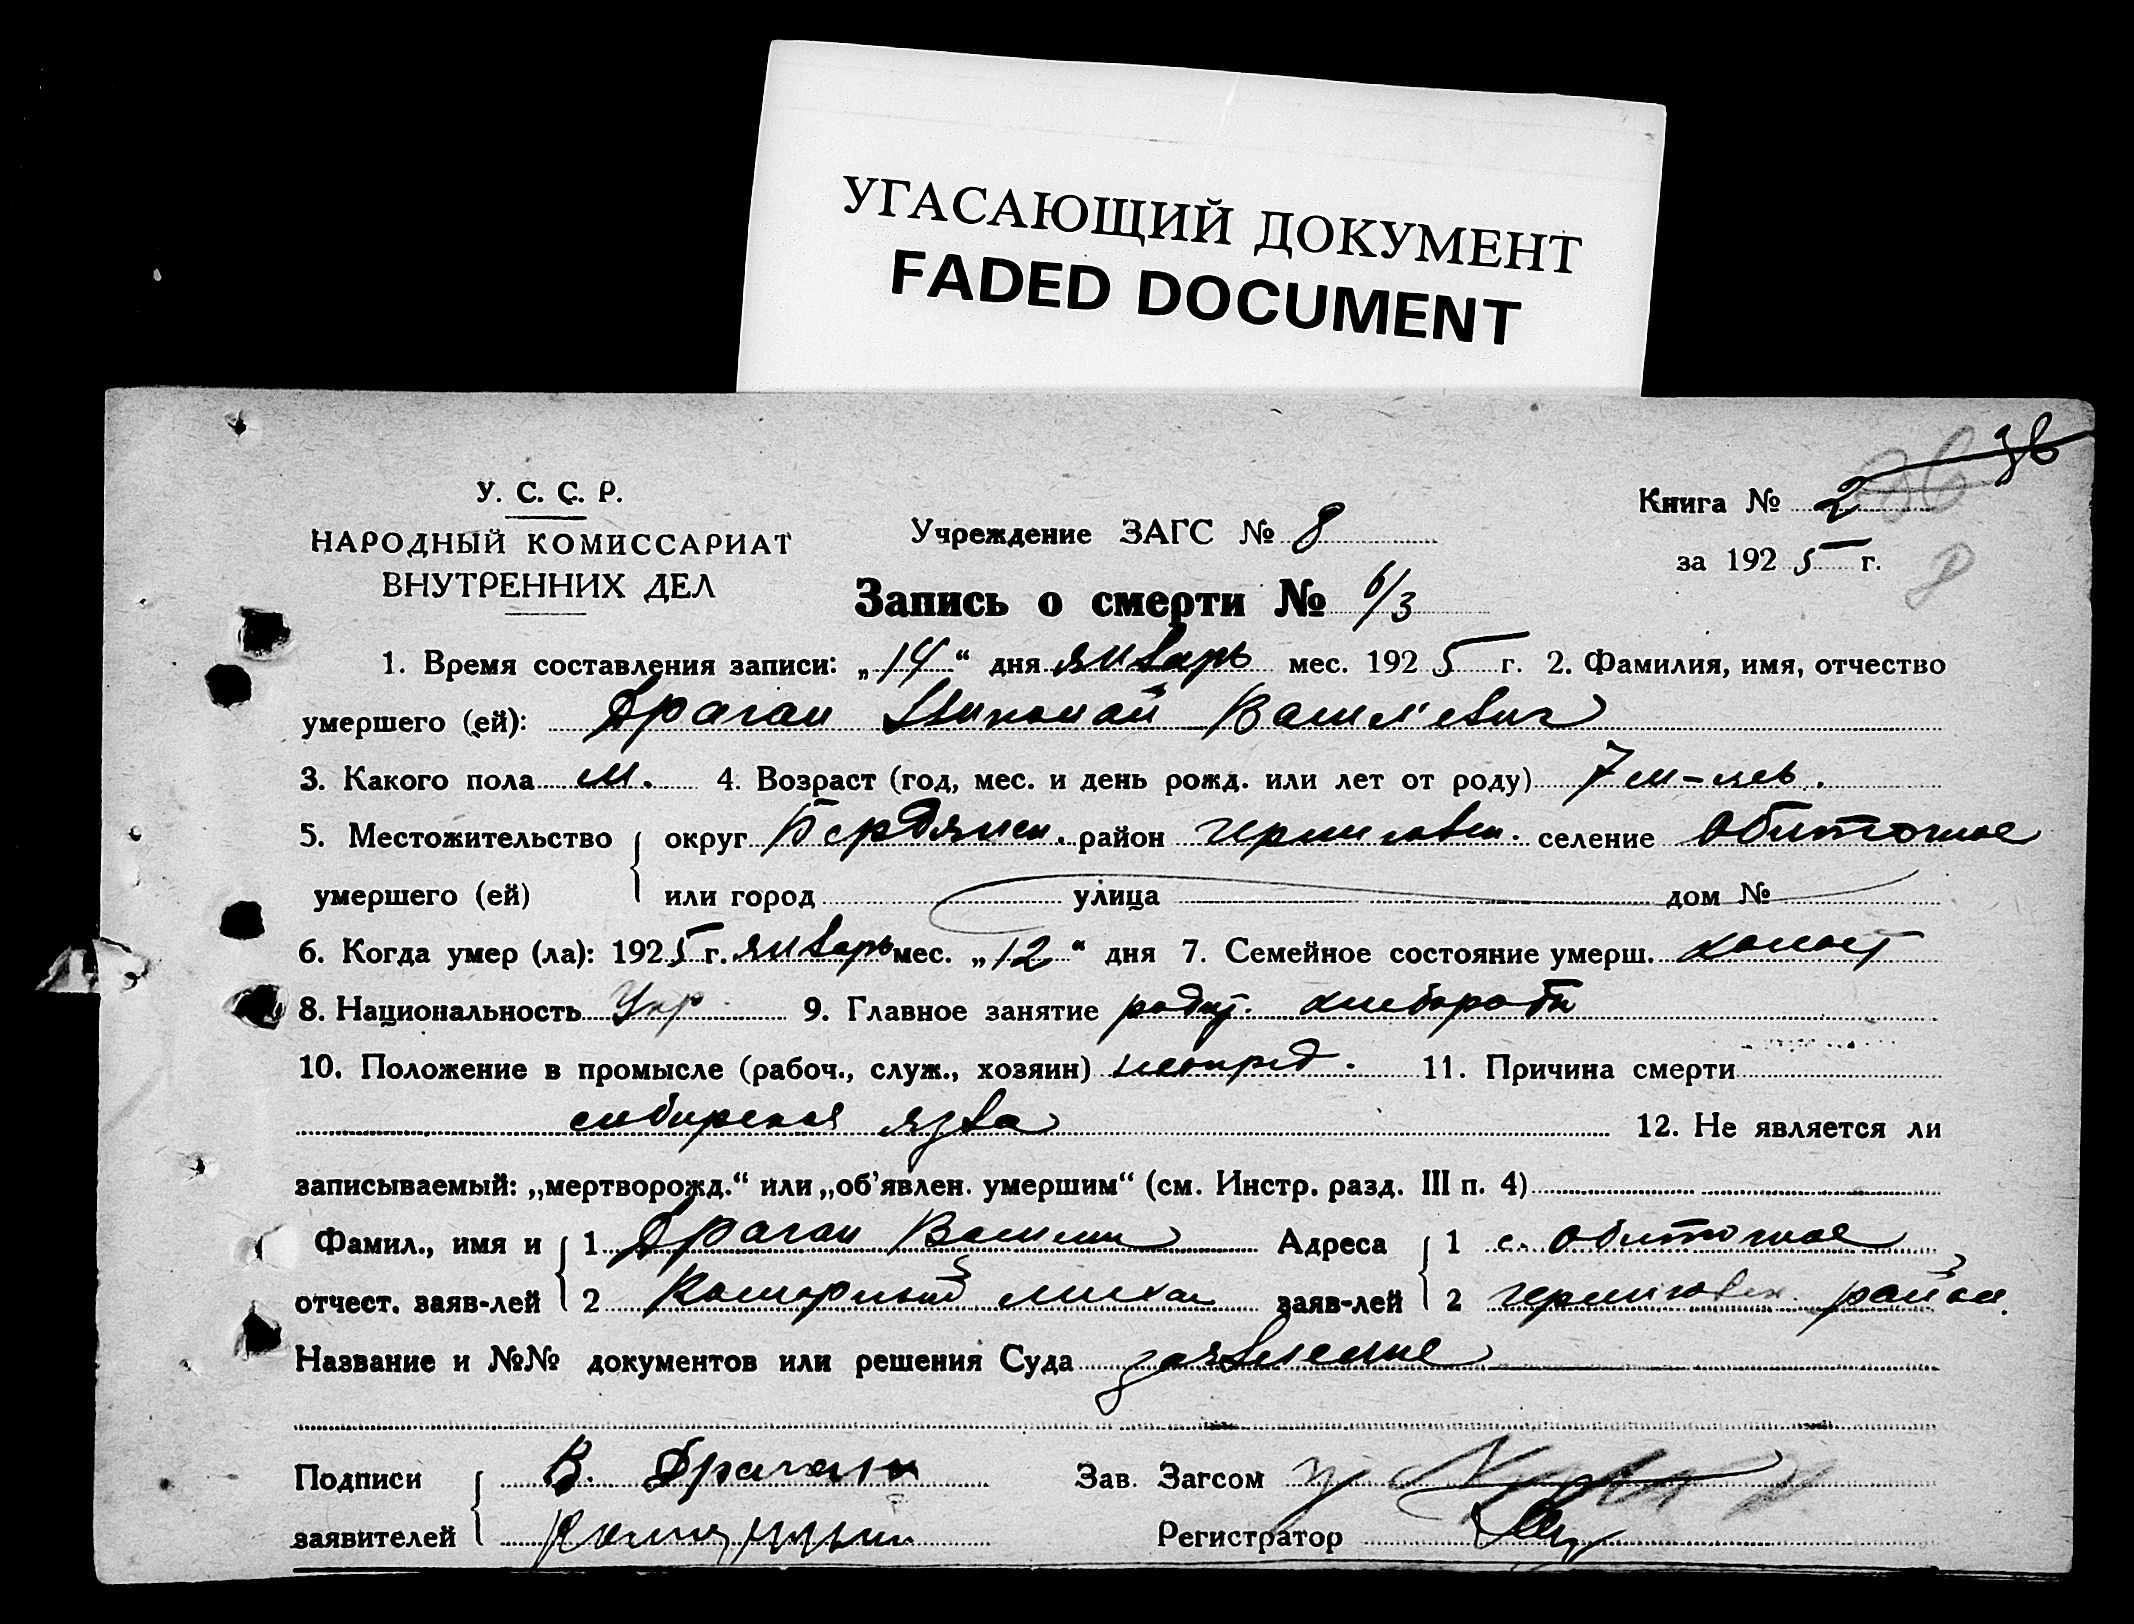 УГАСАЮЩИЙ ДОКУМЕНТ
FADED DOCUMENT
36
У. С. С. Р.
НАРОДНЫЙ КОМИССАРИАТ
ВНУТРЕННИХ ДЕЛ
Учреждение ЗАГС № 8
Книга № 2
за 1925 г.
Запись о смерти № 6/3
1. Время составления записи: „14“ дня январь мес. 1925 г. 2. Фамилия, имя, отчество
умершего (ей): Драган Николай Васильевич
3. Какого пола м. 4. Возраст (год, мес. и день рожд. или лет от роду) 7 м-цев.
5. Местожительство умершего (ей) округ Бердянск. район Черниговск. селение Обиточное
или город улица дом №
6. Когда умер (ла): 1925 г. январь мес. „12“ дня 7. Семейное состояние умерш. холост
8. Национальность Укр 9. Главное занятие родит. хлебороб
10. Положение в промысле (рабоч., служ., хозяин) 11. Причина смерти
сибирская язва 12. Не является ли
записываемый: „мертворожд.“ или „об’явлен. умершим“ (см. Инстр. разд. III п. 4)
Фамил., имя и отчест. заяв-лей 1 Драган Василий Адреса заяв-лей 1 с. Обиточное
2 2 Черниговск. район.
Название и №№ документов или решения Суда заявление
Подписи заявителей В. Драган Зав. Загсом
Регистратор